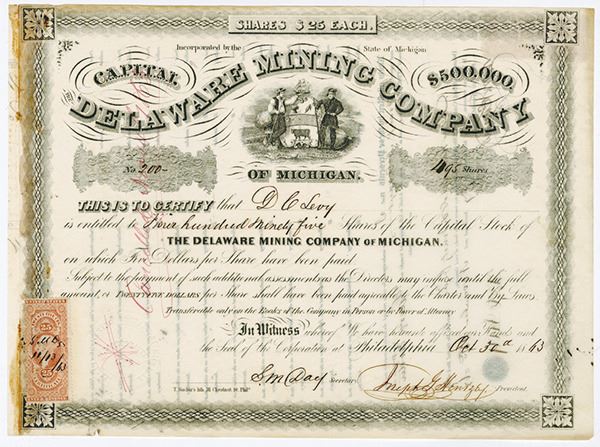 SHARES $25 EACH.
Incorporated by the State of Michigan
CAPITAL $500,000.
DELAWARE MINING COMPANY
OF MICHIGAN.
No. 200 495 Shares
THIS IS TO CERTIFY that D C Levy
is entitled to Four hundred Ninety five Shares of the Capital Stock of
THE DELAWARE MINING COMPANY OF MICHIGAN.
on which Five Dollars per Share have been paid
Subject to the payment of such additional assessments as the Directors may impose until the full
amount of TWENTY FIVE DOLLARS per Share shall have been paid agreeably to the Charter and By Laws
Transferable only on the Books of the Company in Person or by Power of Attorney
In Witness whereof We have hereunto affixed our Hands and
the Seal of the Corporation at Philadelphia Oct 1863
S. M. Day Secretary President
25 25
11/13/63